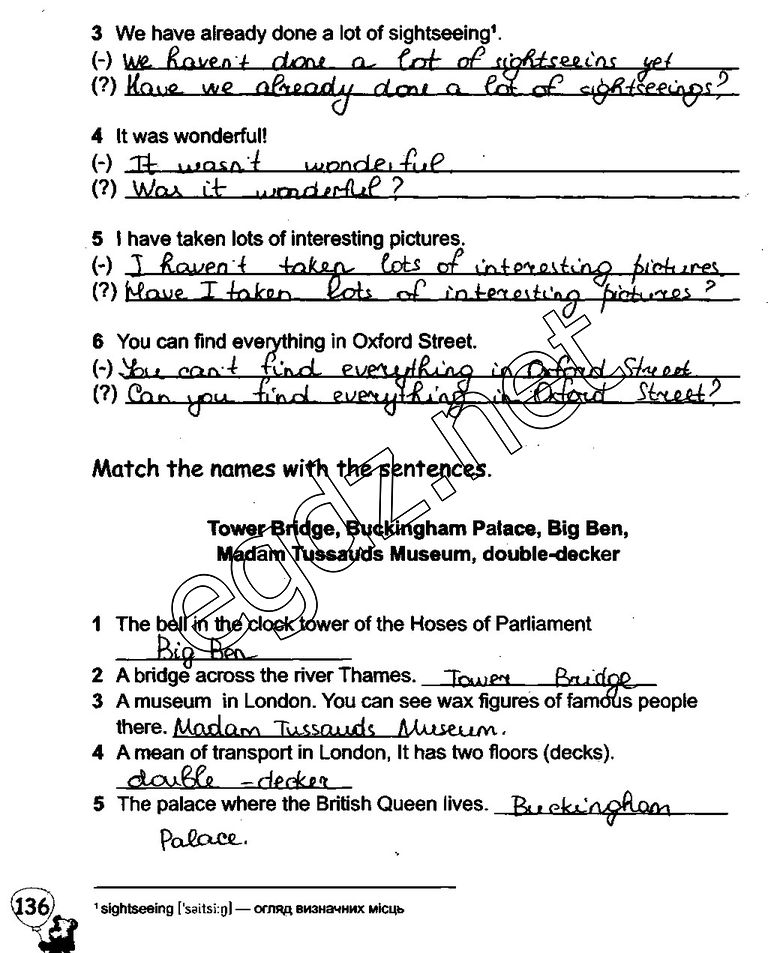 3 We have already done a lot of sightseeing¹.
(-) We haven't done a lot of sightseeins yet
(?) Have we already done a lot of sightseeings?
4 It was wonderful!
(-) It wasn't wonderful.
(?) Was it wonderful?
5 I have taken lots of interesting pictures.
(-) I haven't taken lots of interesting pictures
(?) Have I taken lots of interesting pictures?
6 You can find everything in Oxford Street.
(-) You can't find everything in Oxford Street
(?) Can you find everything in Oxford Street?
Match the names with the sentences.
Tower Bridge, Buckingham Palace, Big Ben,
Madam Tussauds Museum, double-decker
1 The bell in the clock tower of the Hoses of Parliament
Big Ben
2 A bridge across the river Thames. Tower Bridge
3 A museum in London. You can see wax figures of famous people
there. Madam Tussauds Museum.
4 A mean of transport in London, It has two floors (decks).
double-decker
5 The palace where the British Queen lives. Buckingham
Palace.
¹ sightseeing ['səitsi:ŋ] — огляд визначних місць
136
egdz.net